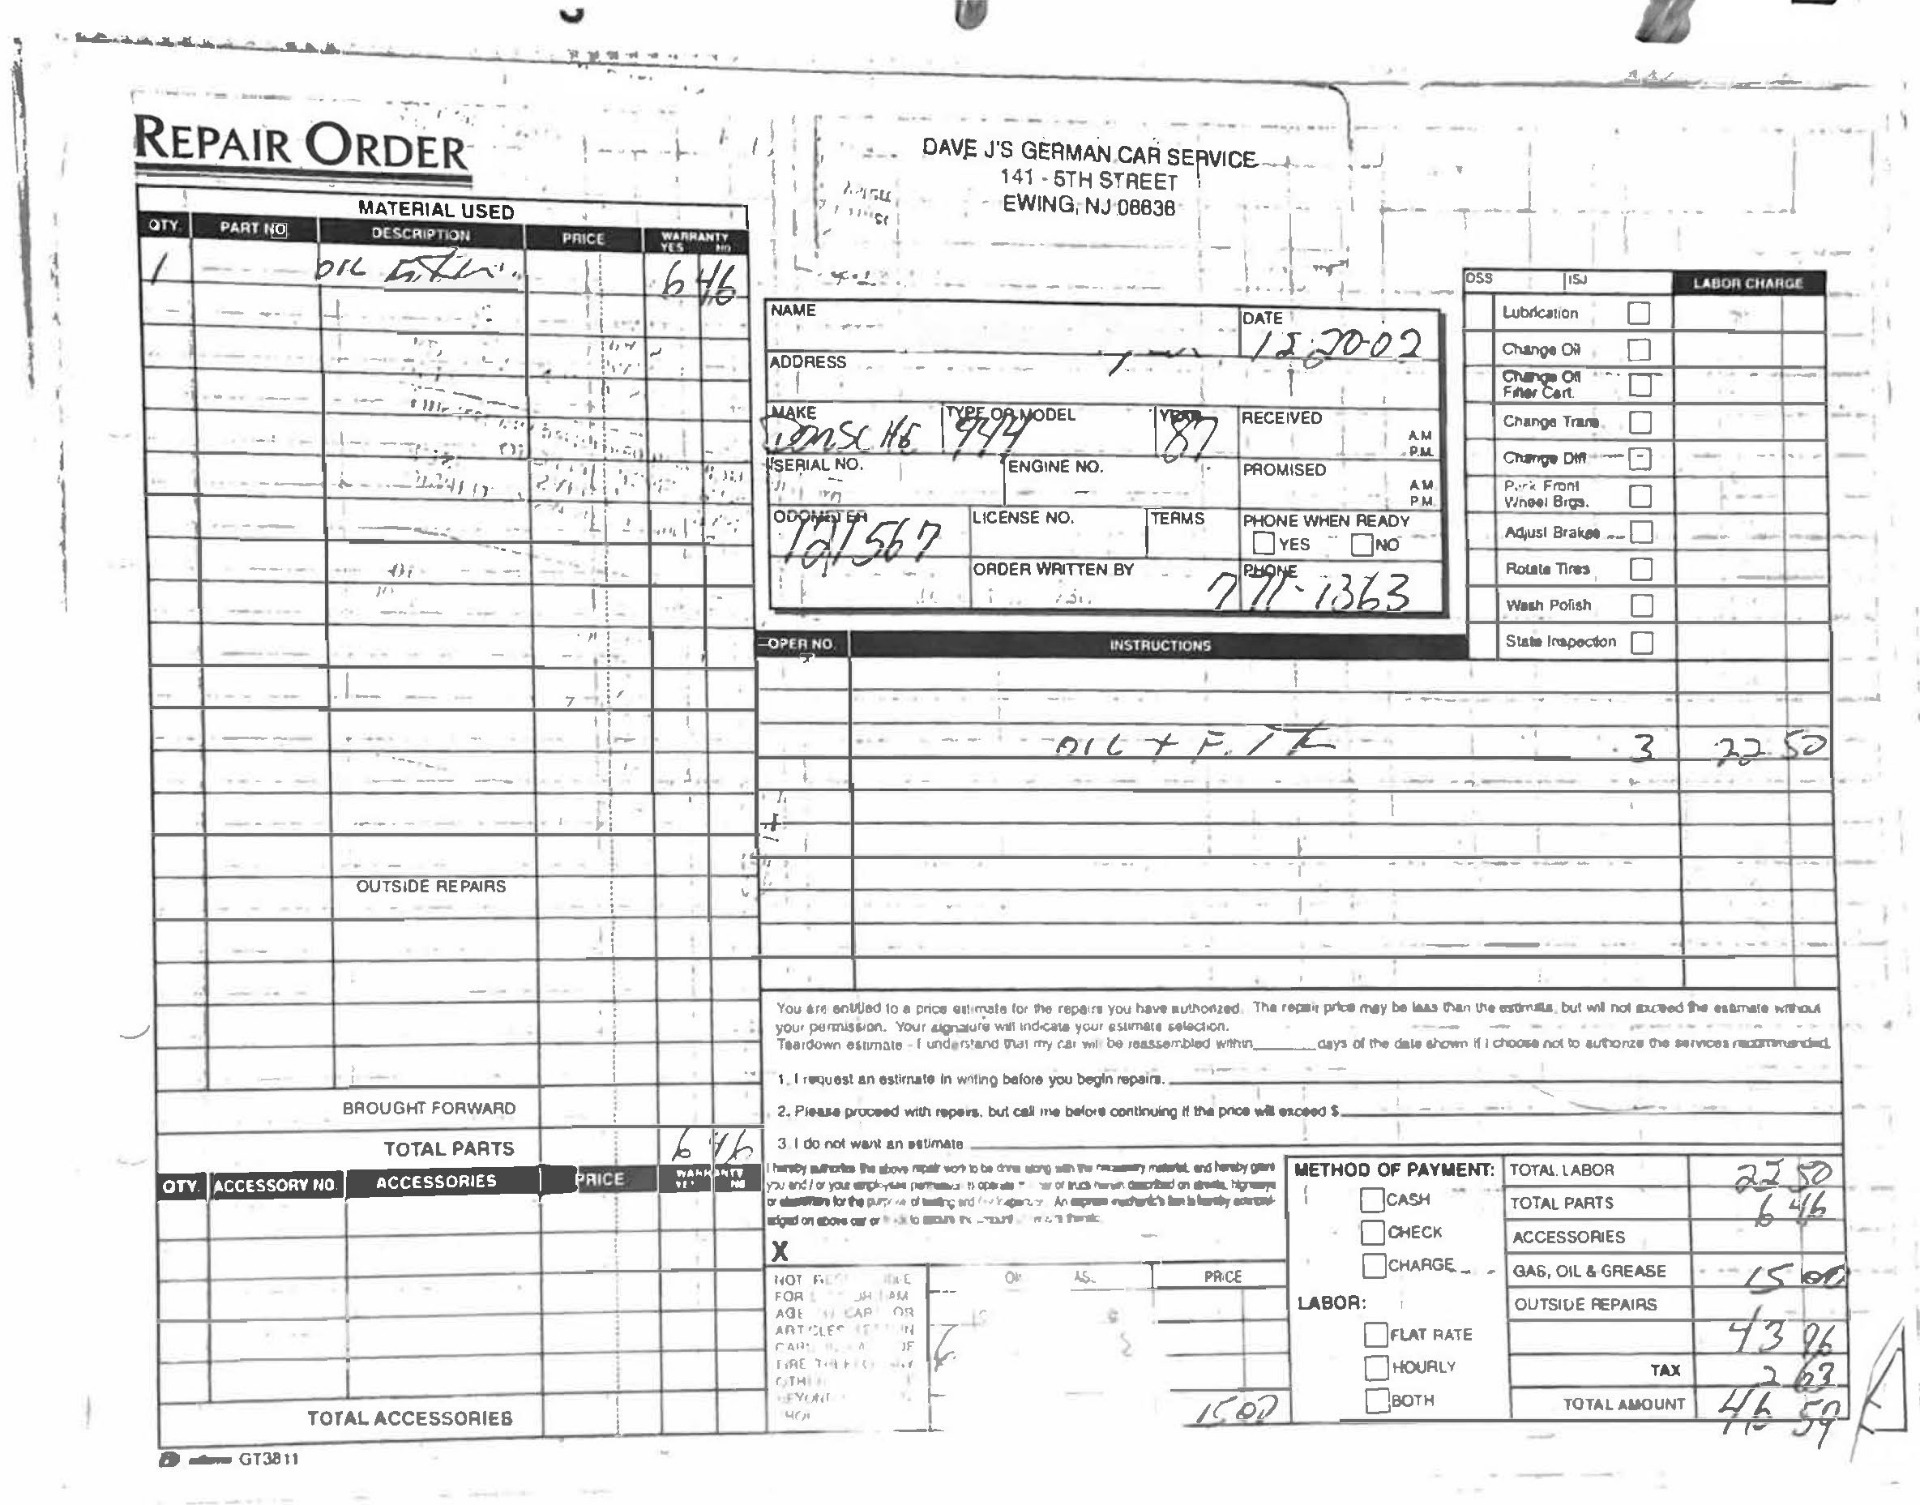 REPAIR ORDER
DAVE J'S GERMAN CAR SERVICE
141 - 5TH STREET
EWING, NJ 08638
MATERIAL USED
QTY. PART NO DESCRIPTION PRICE WARRANTY YES NO
1 OIL 6 46
OUTSIDE REPAIRS
BROUGHT FORWARD
TOTAL PARTS 6 46
QTY. ACCESSORY NO. ACCESSORIES PRICE WARRANTY
TOTAL ACCESSORIES
GT3811
NAME
DATE 12-20-02
ADDRESS
MAKE PORSCHE
TYPE OR MODEL 944
YEAR 87
RECEIVED A.M. P.M.
SERIAL NO.
ENGINE NO.
PROMISED A.M. P.M.
ODOMETER 121567
LICENSE NO.
TERMS
PHONE WHEN READY
YES NO
ORDER WRITTEN BY
PHONE 771-1363
LABOR CHARGE
Lubrication
Change Oil
Change Oil
Filter Cart.
Change Trans
Change Diff
Pack Front
Wheel Brgs.
Adjust Brakes
Rotate Tires
Wash Polish
State Inspection
OPER NO. INSTRUCTIONS
OIL + 3 22 50
You are entitled to a price estimate for the repairs you have authorized. The repair price may be less than the estimate, but will not exceed the estimate without
your permission. Your signature will indicate your estimate selection.
Teardown estimate - I understand that my car will be reassembled within ______ days of the date shown if I choose not to authorize the services recommended.
1. I request an estimate in writing before you begin repairs.
2. Please proceed with repairs, but call me before continuing if the price will exceed $
3. I do not want an estimate
I hereby authorize the above repair work to be done along with the necessary material, and hereby grant
you and / or your employees permission to operate the car or truck herein described on streets, highways
or elsewhere for the purpose of testing and / or inspection. An express mechanic's lien is hereby acknowl-
edged on above car or truck to secure the amount
X
PRICE
15 00
METHOD OF PAYMENT:
CASH
CHECK
CHARGE
LABOR:
FLAT RATE
HOURLY
BOTH
TOTAL LABOR 22 50
TOTAL PARTS 6 46
ACCESSORIES
GAS, OIL & GREASE 15 00
OUTSIDE REPAIRS
43 96
TAX 2 63
TOTAL AMOUNT 46 59